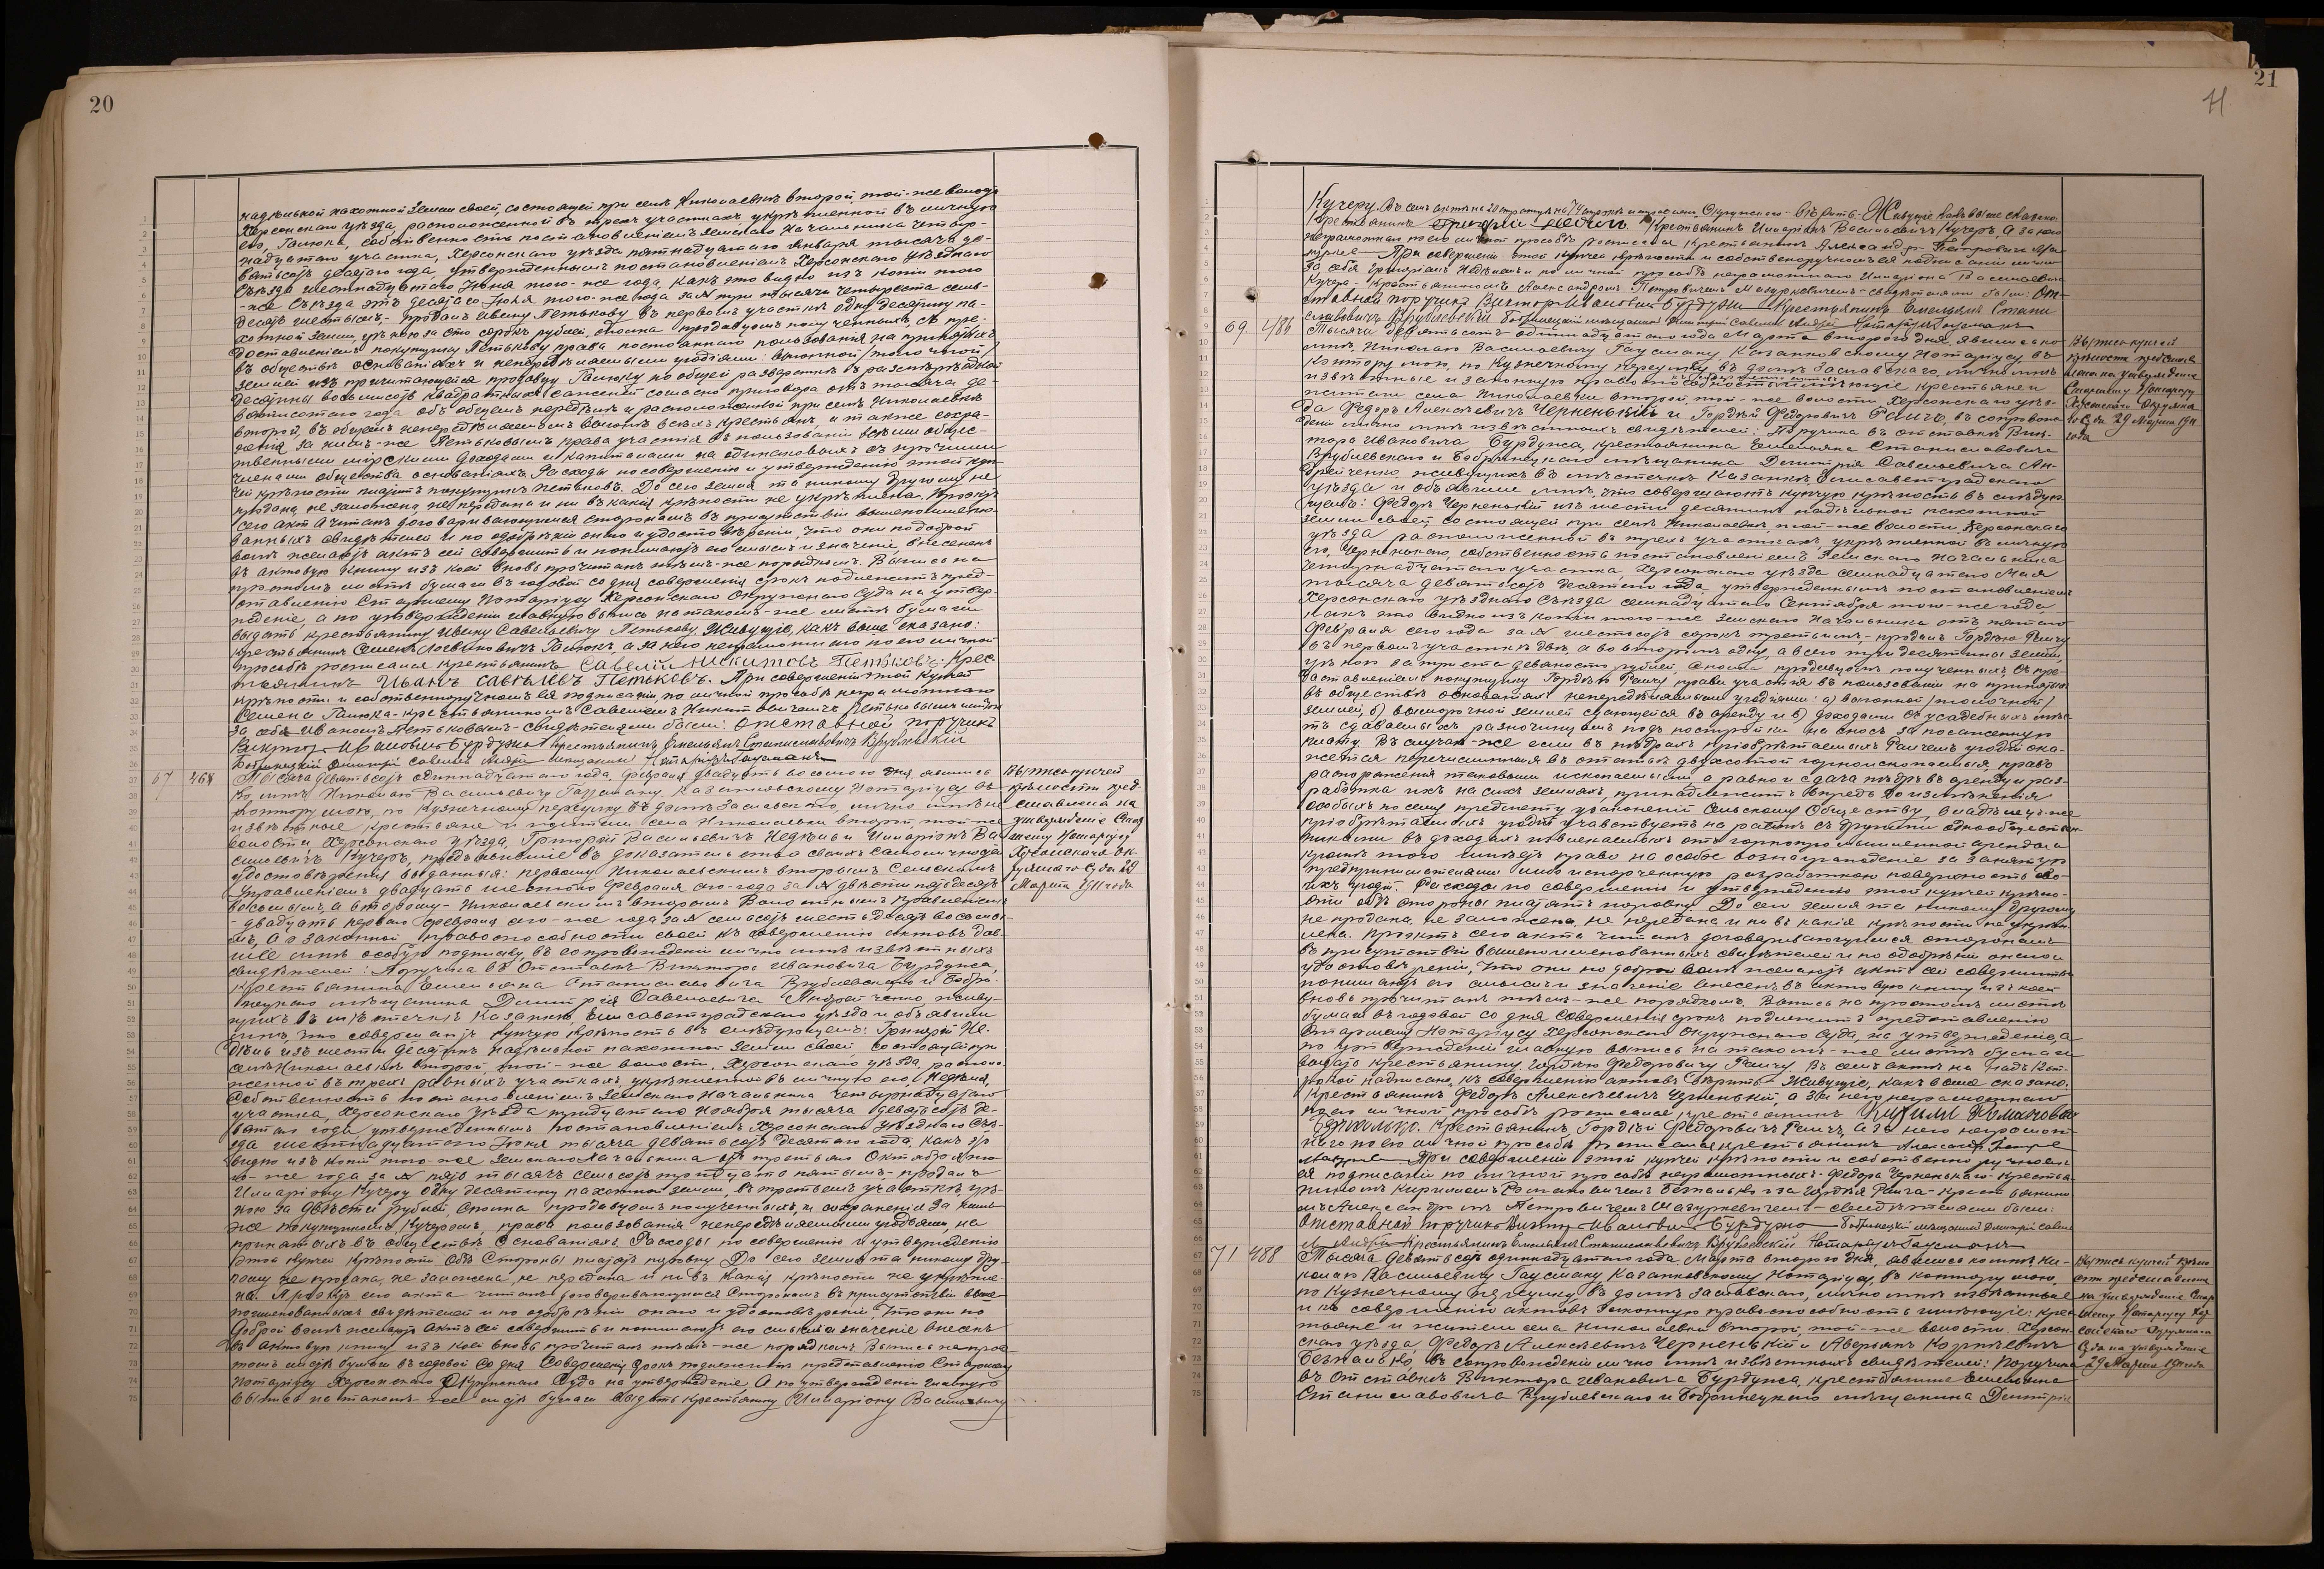 20
надѣльной пахотной земли своей, состоящей при селѣ Николаевкѣ второй, той-же волости
Херсонскаго уѣзда, расположенной въ трехъ участкахъ укрѣпленной въ личную
его, Галюка, собственность постановленіемъ Земскаго Начальника четыр-
надцатаго участка, Херсонскаго уѣзда пятнадцатаго Января тысяча де-
вятьсотъ десятаго года, утвержденнымъ постановленіемъ Херсонскаго уѣзднаго
Съѣзда шестнадцатаго Іюня того-же года, какъ это видно изъ копіи того
-же Съѣзда отъ десятаго Іюля того-же года за № три тысячи четыреста семь-
десятъ шестымъ,- продалъ Ивану Петькову въ первомъ участкѣ одну десятину па-
хотной земли, цѣною за сто сорокъ рублей, сполна продавцомъ полученныхъ, съ пре-
доставленіемъ покупщику Петькову права постояннаго пользованія на принятыхъ
въ обществѣ основаніяхъ и непередѣляемыми угодіями: выгонной /толочной/
землей изъ причитающейся продавцу Галюку по общей разверсткѣ въ размѣрѣ одной
десятины восьмисотъ квадратныхъ саженей согласно приговора отъ тысяча де-
вятисотаго года объ общемъ передѣлѣ и расположенной при селѣ Николаевкѣ
второй, въ общемъ непередѣляемомъ выгонѣ всѣхъ крестьянъ, и также сохра-
нетія за нимъ-же Петьковымъ права участія въ пользованіи всѣми общес-
твенными мірскими доходами и капиталами на одинаковыхъ съ прочими
членами общества основаніяхъ. Расходы по совершенію и утвержденію этой куп-
чей крѣпости платитъ покупщикъ Петьковъ. До сего земля та никому другому не
продана, не заложена, не передана и ни въ какія крѣпости не укрѣплена. Проэктъ
сего акта читанъ договаривающимся сторонамъ въ присутствіи вышепоимено-
ванныхъ свидѣтелей и по одобреніи онаго и удостовѣреніи, что они по доброй
волѣ желаютъ актъ сей совершить и понимаютъ его смыслъ и значеніе, внесенъ
въ актовую книгу изъ коей вновь прочитанъ тѣмъ-же порядкомъ. Выпись на
простомъ листѣ бумаги въ годовой со дня совершенія срокъ подлежитъ пред-
ставленію Старшему Нотаріусу Херсонскаго Окружнаго Суда на утвер-
жденіе, а по утвержденіи главную выпись на такомъ-же листѣ бумаги
выдать крестьянину Ивану Савельевичу Петькову. Живущіе, какъ выше сказано:
крестьянинъ Семенъ Логвиновичъ Галюкъ, а за него неграмотнаго по его личной
просьбѣ росписался крестьянинъ Савелій Никитовъ Петьковъ. Крес-
тьянинъ Иванъ Савельевъ Петьковъ. При совершеніи этой купчей
крѣпости и собственноручномъ ея подписаніи, по личной просьбѣ неграмотнаго
Семена Галюка - крестьяниномъ Савеліемъ Никитовичемъ Петьковымъ и лично
за себя Иваномъ Петьковымъ - свидѣтелями были: отставной поручикъ
Викторъ Ивановичъ Бурдуна Крестьянинъ Емельянъ Станиславовичъ Врублевскій
Бобринецкій мѣщанинъ Нотаріусъ Гаусманъ
67 468 Тысяча девятьсотъ одиннадцатаго года, февраля двадцать восьмого дня, явились
ко мнѣ, Николаю Васильевичу Гаусману, Казанковскому Нотаріусу въ
контору мою, по Кузнечному переулку въ домѣ Заславскаго, лично мнѣ не
извѣстные крестьяне и жители села Николаевки второй, той-же
волости, Херсонскаго уѣзда, Григорій Васильевичъ Недѣль и Иларіонъ Ва-
сильевичъ Кучеръ, предъявившіе въ доказательство своихъ самоличностей
удостовѣренія выданныя: первому Николаевскимъ вторымъ Сельскимъ
Управленіемъ двадцать шестого Февраля сего-года за № двѣсти пятьдесятъ
восьмымъ, а второму- Николаевскимъ вторымъ Волостнымъ правленіемъ
двадцать перваго февраля сего-же года за № семьсотъ шестьдесятъ восьмы-
мъ, а о законной правоспособности своей къ совершенію актовъ дав-
шіе мнѣ особую подписку, въ сопровожденіи лично мнѣ извѣстныхъ
свидѣтелей: Поручика въ Отставкѣ Виктора Ивановича Бурдуна,
крестьянина Емельяна Станиславовича Врублевскаго и Бобри-
нецкаго мѣщанина Димитрія Савельевича Андрейченко, живу-
щихъ въ мѣстечкѣ Казанкѣ, Елисаветградскаго уѣзда и объявили
мнѣ, что совершаютъ купчую крѣпость въ слѣдующемъ: Григорій Не-
дѣль изъ шести десятинъ надѣльной пахотной земли своей состоящей при
селѣ Николаевкѣ второй, той-же волости, Херсонскаго уѣзда, располо-
женной въ трехъ равныхъ участкахъ, укрѣпленной въ личную его, Недѣля,
собственность постановленіемъ Земскаго Начальника четырнадцатаго
участка, Херсонскаго уѣзда тридцатаго Ноября тысяча девятьсотъ де-
вятаго года утвержденнымъ постановленіемъ Херсонскаго Уѣзднаго Съѣ-
зда шестнадцатаго Іюня тысяча девятьсотъ десятаго года, какъ это
видно изъ копіи того-же Земскаго Начальника отъ третьяго Октября то-
го-же года за № пять тысячъ семьсотъ тридцать пятымъ,- продалъ
Иларіону Кучеру одну десятину пахотной земли, въ третьемъ участкѣ, цѣ-
ною за двѣсти рублей, сполна продавцомъ полученныхъ, и сохраненія за нимъ-
же покупщикомъ, Кучеромъ, права пользованія непередѣляемыми угодьями, на
принятыхъ въ обществѣ основаніяхъ. Расходы по совершенію и утвержденію
этой купчей крѣпости обѣ Стороны платятъ поровну. До сего земля та никому дру-
гому не продана, не заложена, не передана и ни въ какія крѣпости не укрѣпле-
на. Проэктъ сего акта читанъ договаривающимся сторонамъ въ присутствіи выше-
поименованныхъ свидѣтелей и по одобреніи онаго и удостовѣреніи, что они по
доброй волѣ желаютъ актъ сей совершить и понимаютъ его смыслъ и значеніе внесенъ
въ актовую книгу изъ коей вновь прочитанъ тѣмъ-же порядкомъ. Выпись на прос-
томъ листѣ бумаги въ годовой со дня совершенія срокъ подлежитъ представленію Старшему
Нотаріусу Херсонскаго Окружнаго Суда на утвержденіе, а по утвержденіи главную
выпись на такомъ-же листѣ бумаги выдать крестьянину Иларіону Васильевичу
Выпись купчей
крѣпости пред-
ставлена на
утвержденіе Стар-
шему Нотаріусу
Херсонскаго Ок-
ружнаго Суда 29
Марта 1911 года
21
Кучеру. Въ семъ актѣ на 20 страницѣ на 74 строкѣ исправлено Окружнаго - вѣрить. Живущіе какъ выше сказано:
крестьянинъ Григорій Недѣль. Крестьянинъ Иларіонъ Васильевичъ Кучеръ, а за него
неграмотнаго по его личной просьбѣ росписался крестьянинъ Александръ Петровичъ
При совершеніи этой купчей крѣпости и собственноручномъ ея подписаніи лично
за себя Григоріемъ Недѣлемъ и по личной просьбѣ неграмотнаго Иларіона Васильевича
Кучера - крестьяниномъ Александромъ Петровичемъ Мазуркевичемъ - свидѣтелями были: От-
ставной поручикъ Викторъ Ивановичъ Бурдуна Крестьянинъ Емельянъ Стани-
славовичъ Врублевскій Бобринецкій мѣщанинъ Дмитрій Савельевъ Андрей Нотаріусъ Гаусманъ
69. 486 Тысяча девятьсотъ одиннадцатаго года Марта второго дня, явились ко
мнѣ, Николаю Васильевичу Гаусману, Казанковскому Нотаріусу, въ
контору мою, по Кузнечному переулку, въ домѣ Заславскаго, лично мнѣ
извѣстные и законную правоспособность имѣющіе крестьяне и
жители села Николаевки второй, той-же волости Херсонскаго уѣз-
да Федоръ Алексѣевичъ Черненькій и Гордѣй Федоровичъ Раичъ, въ сопровож-
деніи лично мнѣ извѣстныхъ свидѣтелей: Поручика въ отставкѣ Вик-
тора Ивановича Бурдуна, крестьянина Емельяна Станиславовича
Врублевскаго и Бобринецкаго мѣщанина Димитрія Савельевича Ан-
дрейченко, живущихъ въ мѣстечкѣ Казанкѣ, Елисаветградскаго
уѣзда и объявили мнѣ, что совершаютъ купчую крѣпость въ слѣдую-
щемъ: Федоръ Черненькій изъ шести десятинъ надѣльной пахотной
земли своей состоящей при селѣ Николаевкѣ той-же волости Херсонскаго
уѣзда расположенной въ трехъ участкахъ, укрѣпленной въ личную
его, Черненькаго, собственность постановленіемъ Земскаго Начальника
четырнадцатаго участка, Херсонскаго уѣзда семнадцатаго Мая
тысяча девятьсотъ десятаго года, утвержденнымъ постановленіемъ
Херсонскаго уѣзднаго Съѣзда семнадцатаго Сентября того-же года
какъ это видно изъ копіи того-же Земскаго Начальника отъ пятаго
Февраля сего года за № шестьсотъ сорокъ третьимъ,- продалъ Гордѣю Раичу
въ первомъ участкѣ двѣ, а во второмъ одну, а всего три десятины земли,
цѣною за триста девяносто рублей, сполна продавцомъ полученныхъ, съ пре-
доставленіемъ покупщику Гордѣю Раичу, права участія въ пользованіи на принятыхъ
въ обществѣ основаніяхъ непередѣляемыми угодіями: а) выгонной /толочной/
землей, б) выморочной землей сдающейся въ аренду и в) доходами отъ усадебныхъ мѣс-
тъ сдаваемыхъ разночинцамъ подъ постройки на сносъ за посаженную
плату. Въ случаѣ-же если въ нѣдрахъ пріобрѣтаемыхъ Раичемъ угодій ока-
жется перечисленныя въ статьѣ двухсотой горноископаемыя, право
распоряженія таковыми ископаемыми, а равно и сдача нѣдръ въ аренду и раз-
работка ихъ на сихъ земляхъ, принадлежитъ впредь до изъясненія
особыхъ по сему предмету узаконеній Сельскому Обществу, владѣлецъ-же
пріобрѣтаемыхъ угодій участвуетъ на равнѣ съ другими однообществен-
никами въ доходахъ извлекаемыхъ отъ горнопромышленной аренды и
кромѣ того имѣетъ право на особое вознагражденіе за занятую
предпринимателями либо испорченную разработкою поверхность сво-
ихъ угодій. Расходы по совершенію и утвержденію этой купчей крѣпо-
сти обѣ стороны платятъ поровну. До сего земля та никому другому
не продана, не заложена, не передана и ни въ какія крѣпости не укрѣп-
лена. Проэктъ сего акта читанъ договаривающимся сторонамъ
въ присутствіи вышепоименованныхъ свидѣтелей и по одобреніи онаго и
удостовѣреніи, что они по доброй волѣ желаютъ актъ сей совершить и
понимаютъ его смыслъ и значеніе внесенъ въ актовую книгу изъ коей
вновь прочитанъ тѣмъ-же порядкомъ. Выпись на простомъ листѣ
бумаги въ годовой со дня совершенія срокъ подлежитъ представленію
Старшему Нотаріусу Херсонскаго Окружнаго Суда, на утвержденіе, а
по утвержденіи главную выпись на такомъ-же листѣ бумаги
выдать крестьянину Гордѣю Федоровичу Раичу. Въ семъ актѣ на надъ 12ой ст-
рокой надписано, къ совершенію актовъ - вѣрить. Живущіе, какъ выше сказано.
Крестьянинъ Федоръ Алексѣевичъ Черненькій, а за него неграмотнаго
по его личной просьбѣ росписался крестьянинъ Кирилъ Романовъ
Безпалько. Крестьянинъ Гордѣй Федоровичъ Раичъ, а за него неграмот-
наго по его личной просьбѣ росписался крестьянинъ Александръ Петро
При совершеніи этой купчей крѣпости и собственноручномъ
ея подписаніи по личной просьбѣ неграмотныхъ: Федора Черненькаго - крестья-
ниномъ Кириломъ Романовичемъ Безпалько и за Гордѣя Раича - крестьянино-
мъ Александромъ Петровичемъ Мазуркевичемъ - свидѣтелями были:
Отставной поручикъ Викторъ Ивановичъ Бурдуна Бобринецкій мѣщанинъ Дмитрій Савел
Крестьянинъ Емельянъ Станиславовичъ Врублевскій Нотаріусъ Гаусманъ
71 488 Тысяча девятьсотъ одиннадцатаго года Марта второго дня, явились ко мнѣ Ни-
колаю Васильевичу Гаусману Казанковскому Нотаріусу, въ контору мою,
по Кузнечному переулку въ домѣ Заславскаго, лично мнѣ извѣстные
и къ совершенію актовъ законную правоспособность имѣющіе: крес-
тьяне и жители села Николаевки второй, той-же волости Херсон-
скаго уѣзда, Федоръ Алексѣевичъ Черненькій и Аверьянъ Корнѣевичъ
Безпалько, въ сопровожденіи лично мнѣ извѣстныхъ свидѣтелей: Поручика
въ Отставкѣ Виктора Ивановича Бурдуна, крестьянина Емельяна
Станиславовича Врублевскаго и Бобринецкаго мѣщанина Димитрія
Выпись купчей
крѣпости представ-
лена на утвержденіе
Старшему Нотаріусу
Херсонскаго Окружна-
го Суда 29 Марта 1911
года
Выпись купчей крѣпо-
сти представлена
на утвержденіе Стар-
шему Нотаріусу Хер-
сонскаго Окружнаго
Суда на утвержденіе
29 Марта 1911 года